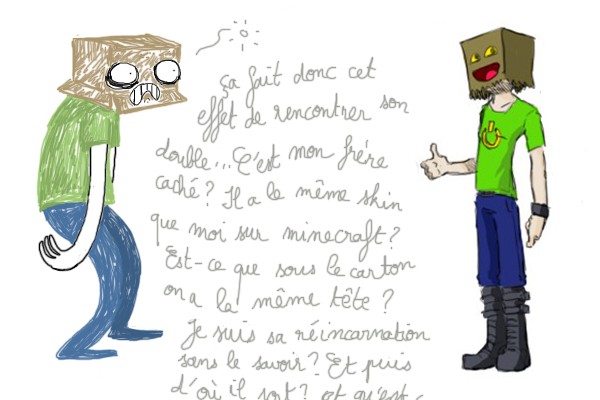 ça fait donc cet
effet de rencontrer son
double... C'est mon frère
caché? Il a le même skin
que moi sur minecraft?
Est-ce que sous le carton
on a la même tête?
Je suis sa réincarnation
sans le savoir? Et puis
d'où il sort? et qu'est-